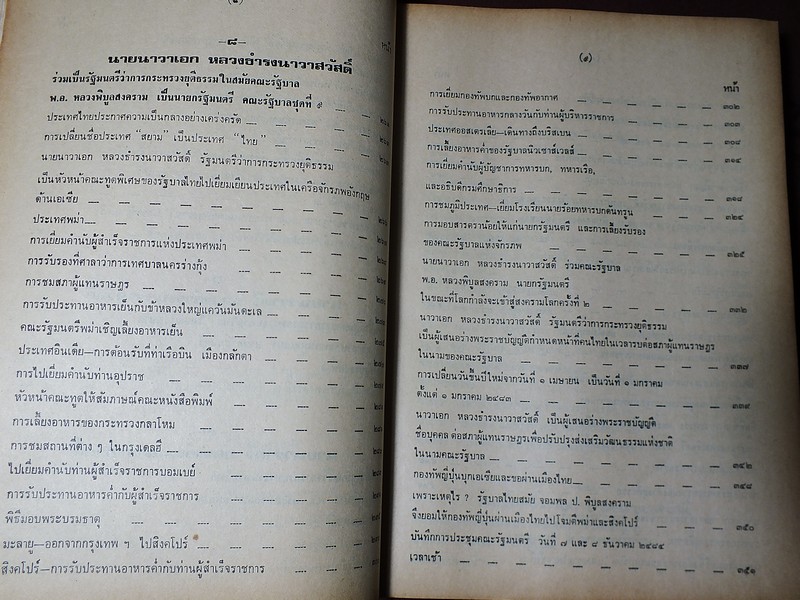 —๘—
หน้า
นายนาวาเอก หลวงธำรงนาวาสวัสดิ์
ร่วมเป็นรัฐมนตรีว่าการกระทรวงยุติธรรมในสมัยคณะรัฐบาล
พ.อ. หลวงพิบูลสงคราม เป็นนายกรัฐมนตรี คณะรัฐบาลชุดที่ ๙
ประเทศไทยประกาศความเป็นกลางอย่างเคร่งครัด
การเปลี่ยนชื่อประเทศ "สยาม" เป็นประเทศ "ไทย"
นายนาวาเอก หลวงธำรงนาวาสวัสดิ์ รัฐมนตรีว่าการกระทรวงยุติธรรม
เป็นหัวหน้าคณะทูตพิเศษของรัฐบาลไทยไปเยี่ยมเยียนประเทศในเครือจักรภพอังกฤษ
ด้านเอเซีย
ประเทศพม่า
การเยี่ยมคำนับผู้สำเร็จราชการแห่งประเทศพม่า
การรับรองที่ศาลาว่าการเทศบาลนครร่างกุ้ง
การชมสภาผู้แทนราษฎร
การรับประทานอาหารเย็นกับข้าหลวงใหญ่แคว้นมันดะเล
คณะรัฐมนตรีพม่าเชิญเลี้ยงอาหารเย็น
ประเทศอินเดีย—การต้อนรับที่ท่าเรือบิน เมืองกลักตา
การไปเยี่ยมคำนับท่านอุปราช
หัวหน้าคณะทูตให้สัมภาษณ์คณะหนังสือพิมพ์
การเลี้ยงอาหารของกระทรวงกลาโหม
การชมสถานที่ต่าง ๆ ในกรุงเดลฮี
ไปเยี่ยมคำนับท่านผู้สำเร็จราชการบอมเบย์
การรับประทานอาหารค่ำกับผู้สำเร็จราชการ
พิธีมอบพระบรมธาตุ
มะลายู—ออกจากกรุงเทพ ฯ ไปสิงคโปร์
สิงคโปร์—การรับประทานอาหารค่ำกับท่านผู้สำเร็จราชการ
(๙)
หน้า
การเยี่ยมกองทัพบกและกองทัพอากาศ ๓๐๒
การรับประทานอาหารกลางวันกับท่านผู้บริหารราชการ ๓๐๓
ประเทศออสเตรเลีย—เดินทางถึงบริสเบน ๓๐๘
การเลี้ยงอาหารค่ำของรัฐบาลนิวเซาธ์เวลส์ ๓๑๔
การเยี่ยมคำนับผู้บัญชาการทหารบก, ทหารเรือ,
และอธิบดีกรมศึกษาธิการ ๓๑๘
การชมภูมิประเทศ—เยี่ยมโรงเรียนนายร้อยทหารบกดันทรูน ๓๒๔
การมอบสารตราน้อยให้แก่นายกรัฐมนตรี และการเลี้ยงรับรอง
ของคณะรัฐบาลแห่งจักรภพ ๓๒๕
นายนาวาเอก หลวงธำรงนาวาสวัสดิ์ ร่วมคณะรัฐบาล
พ.อ. หลวงพิบูลสงคราม นายกรัฐมนตรี
ในขณะที่โลกกำลังจะเข้าสู่สงครามโลกครั้งที่ ๒ ๓๓๒
นาวาเอก หลวงธำรงนาวาสวัสดิ์ รัฐมนตรีว่าการกระทรวงยุติธรรม
เป็นผู้เสนอร่างพระราชบัญญัติกำหนดหน้าที่คนไทยในเวลารบต่อสภาผู้แทนราษฎร
ในนามของคณะรัฐบาล ๓๓๗
การเปลี่ยนวันขึ้นปีใหม่จากวันที่ ๑ เมษายน เป็นวันที่ ๑ มกราคม
ตั้งแต่ ๑ มกราคม ๒๔๘๓ ๓๓๙
นาวาเอก หลวงธำรงนาวาสวัสดิ์ เป็นผู้เสนอร่างพระราชบัญญัติ
ชื่อบุคคล ต่อสภาผู้แทนราษฎรเพื่อปรับปรุงส่งเสริมวัฒนธรรมแห่งชาติ
ในนามคณะรัฐบาล ๓๔๒
กองทัพญี่ปุ่นบุกเอเซียและขอผ่านเมืองไทย ๓๔๘
เพราะเหตุไร ? รัฐบาลไทยสมัย จอมพล ป. พิบูลสงคราม
จึงยอมให้กองทัพญี่ปุ่นผ่านเมืองไทยไปโจมตีพม่าและสิงคโปร์ ๓๕๐
บันทึกการประชุมคณะรัฐมนตรี วันที่ ๗ และ ๘ ธันวาคม ๒๔๘๔
เวลาเช้า ๓๕๑